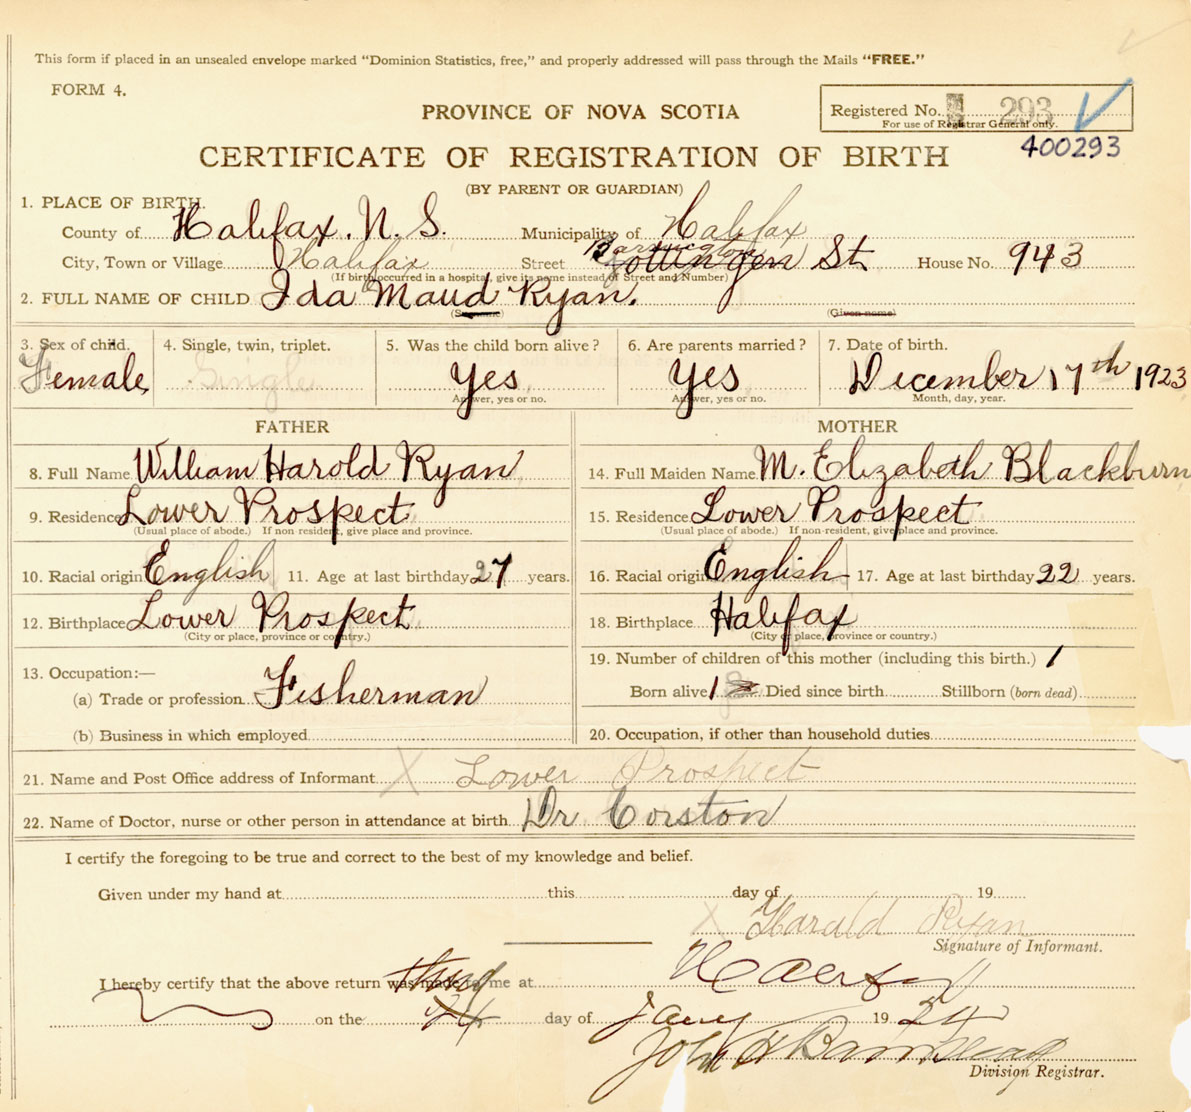 This form if placed in an unsealed envelope marked "Dominion Statistics, free," and properly addressed will pass through the Mails "FREE."
FORM 4.
PROVINCE OF NOVA SCOTIA
Registered No. 293
For use of Registrar General only.
400293
CERTIFICATE OF REGISTRATION OF BIRTH
(BY PARENT OR GUARDIAN)
1. PLACE OF BIRTH.
County of Halifax. N. S. Municipality of Halifax
City, Town or Village Halifax Street Barrington St. House No. 943
(If birth occurred in a hospital, give its name instead of Street and Number)
2. FULL NAME OF CHILD Ida Maud Ryan.
(Surname) (Given name)
3. Sex of child. 4. Single, twin, triplet. 5. Was the child born alive? 6. Are parents married? 7. Date of birth.
Female Single Yes Yes December 17th 1923
Answer, yes or no. Answer, yes or no. Month, day, year.
FATHER MOTHER
8. Full Name William Harold Ryan 14. Full Maiden Name M. Elizabeth Blackburn
9. Residence Lower Prospect 15. Residence Lower Prospect
(Usual place of abode.) If non-resident, give place and province. (Usual place of abode.) If non-resident, give place and province.
10. Racial origin English 11. Age at last birthday 27 years. 16. Racial origin English 17. Age at last birthday 22 years.
12. Birthplace Lower Prospect 18. Birthplace Halifax
(City or place, province or country.) (City or place, province or country.)
13. Occupation:— 19. Number of children of this mother (including this birth.) 1
(a) Trade or profession Fisherman Born alive 1 Died since birth Stillborn (born dead)
(b) Business in which employed 20. Occupation, if other than household duties
21. Name and Post Office address of Informant X Lower Prospect
22. Name of Doctor, nurse or other person in attendance at birth Dr Corston
I certify the foregoing to be true and correct to the best of my knowledge and belief.
Given under my hand at this day of 19
X Harald Ryan
Signature of Informant.
I hereby certify that the above return was made to me at
on the 24 day of Jany 19 24
John H
Division Registrar.